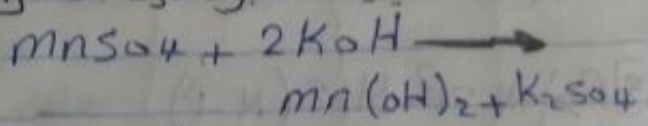 mnSO4 + 2KOH ⟶
mn(OH)2 + K2SO4